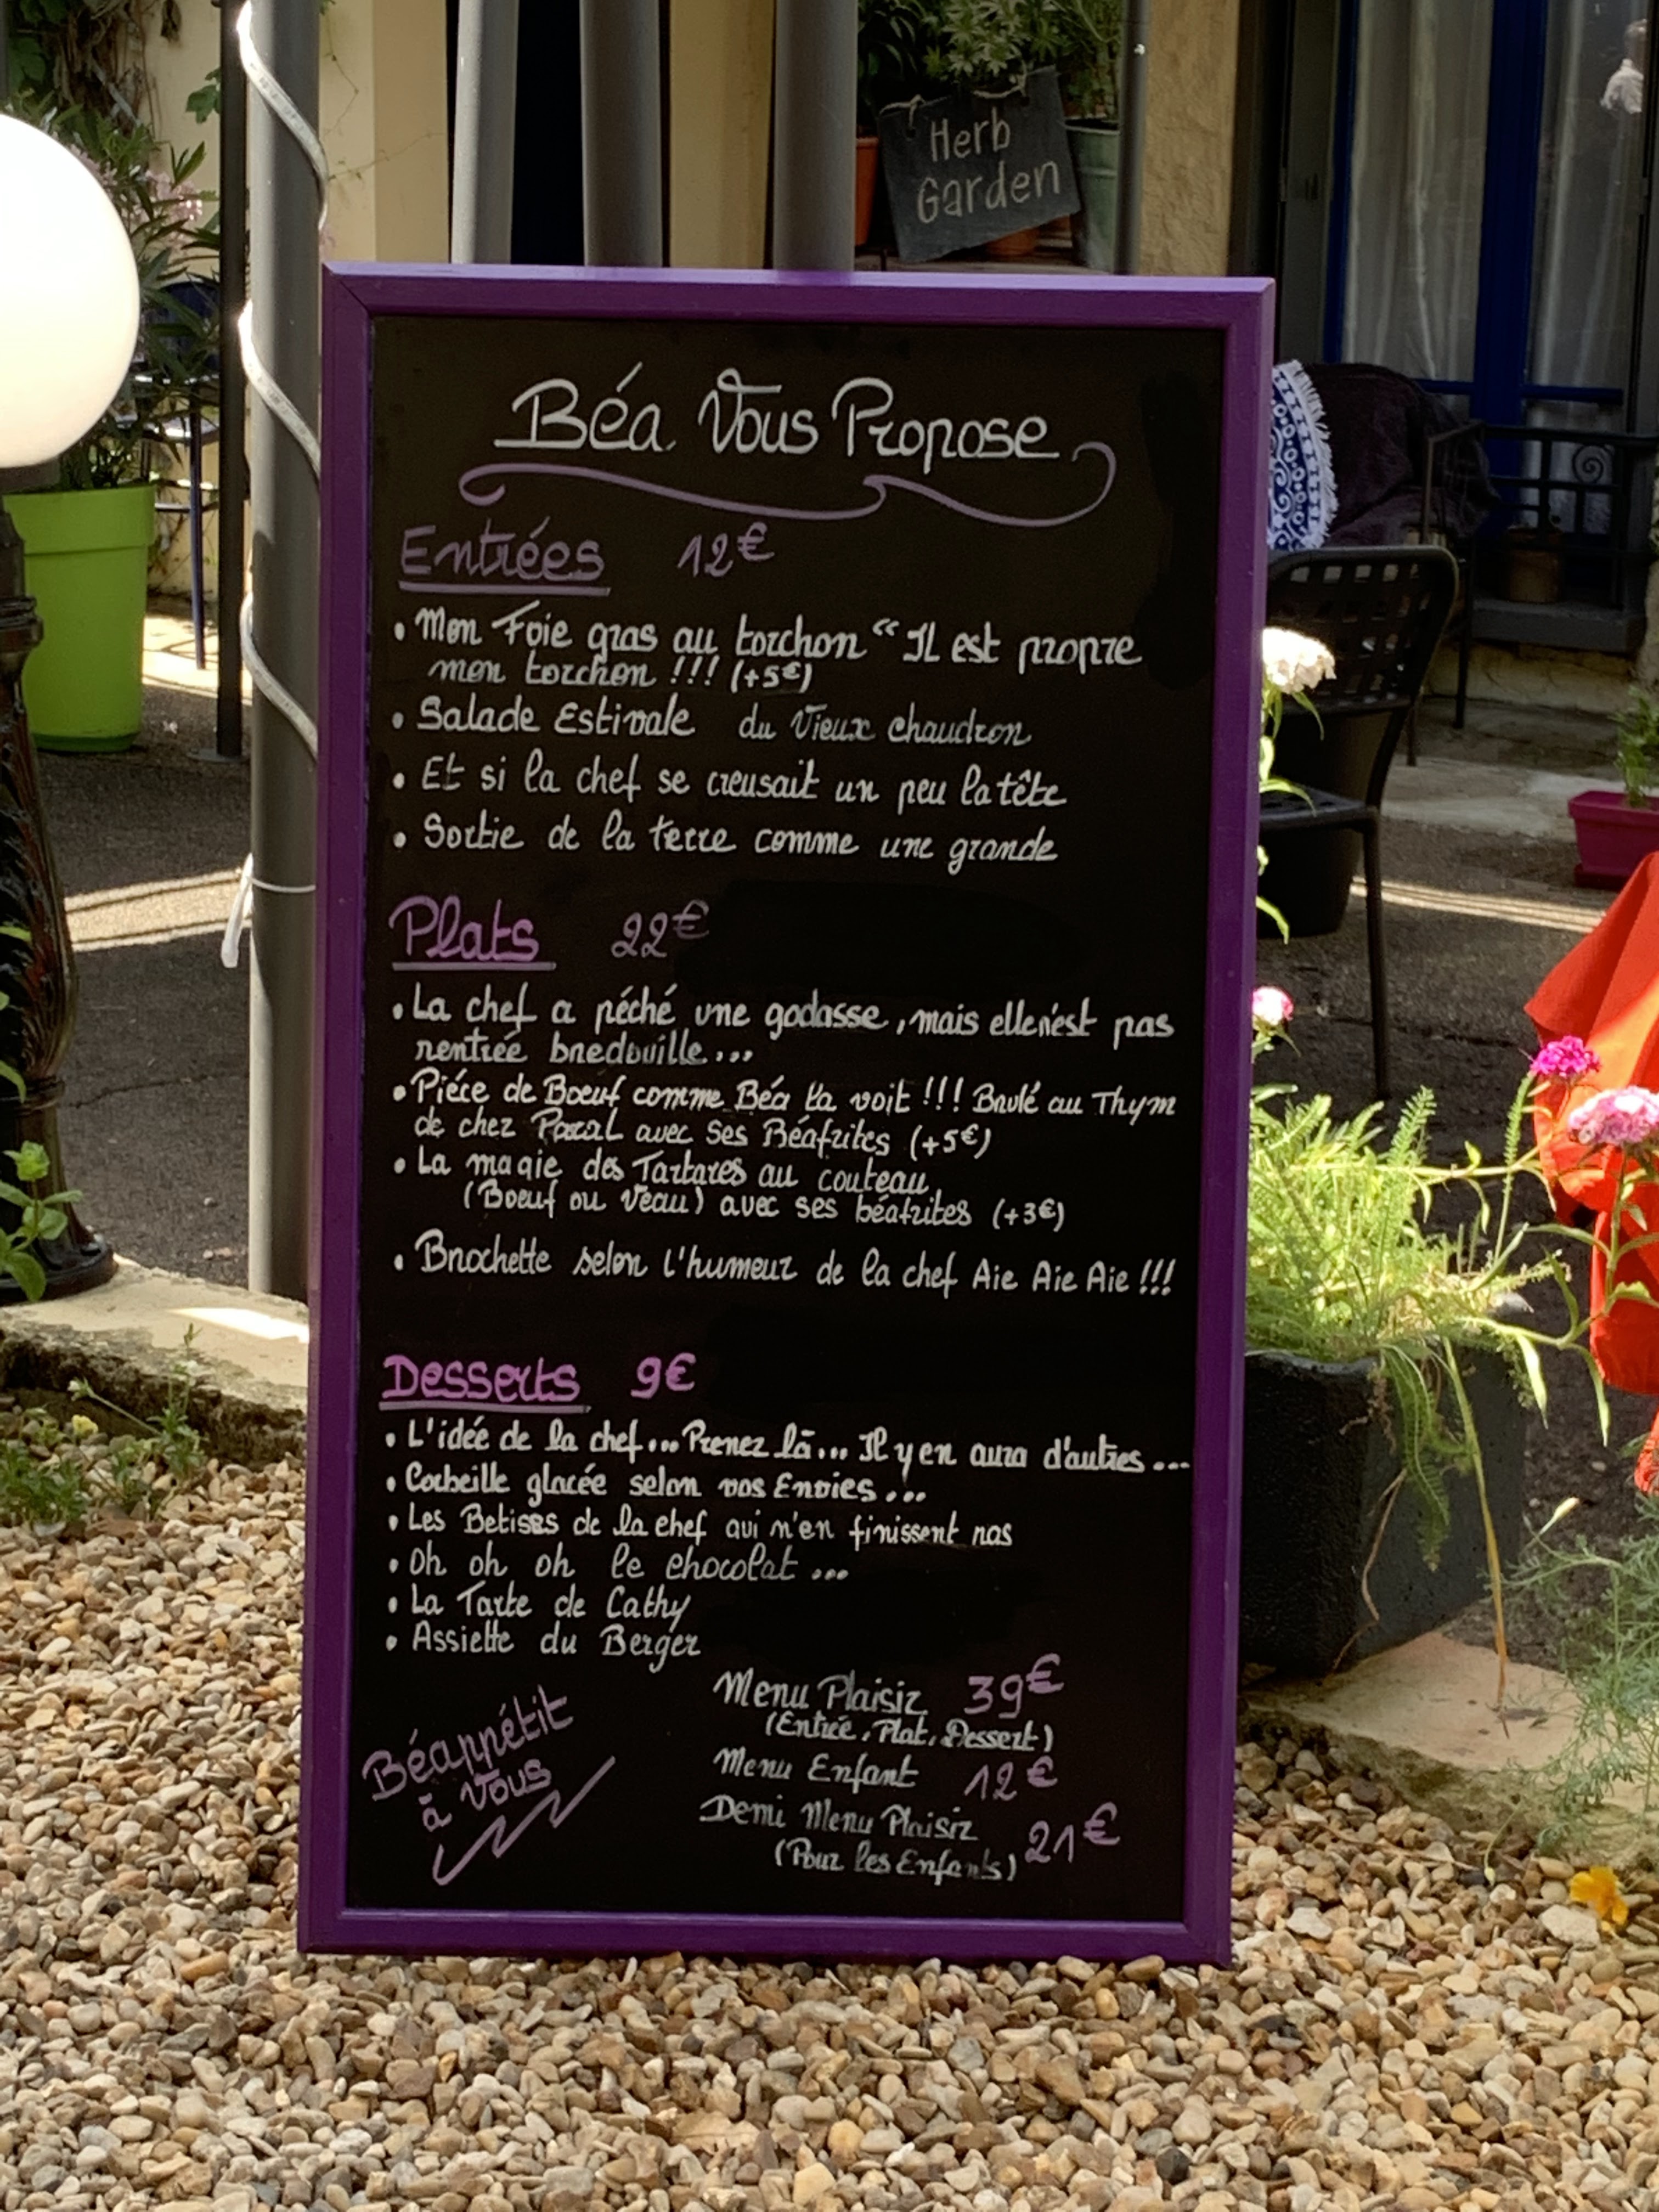 Herb
Garden
Béa Vous Propose
Entrées 12€
• Mon Foie gras au torchon “ Il est propre
mon torchon !!! (+5€)
• Salade Estivale du Vieux chaudron
• Et si la chef se creusait un peu la tête
• Sortie de la terre comme une grande
Plats 22€
• La chef a péché une godasse, mais elle n'est pas
rentrée bredouille...
• Piéce de Boeuf comme Béa la voit !!! Brulé au Thym
de chez Pascal avec Ses Béafrites (+5€)
• La magie des Tartares au couteau
(Boeuf ou Veau) avec ses béafrites (+3€)
• Brochette selon l'humeur de la chef Aie Aie Aie !!!
Desserts 9€
• L'idée de la chef... Prenez là... Il y en aura d'autres...
• Corbeille glacée selon vos Envies...
• Les Betises de la chef qui n'en finissent pas
• Oh oh oh le chocolat...
• La Tarte de Cathy
• Assiette du Berger
Menu Plaisir 39€
(Entrée, Plat, Dessert)
Menu Enfant 12€
Demi Menu Plaisir 21€
(Pour les Enfants)
Béappétit
à Vous